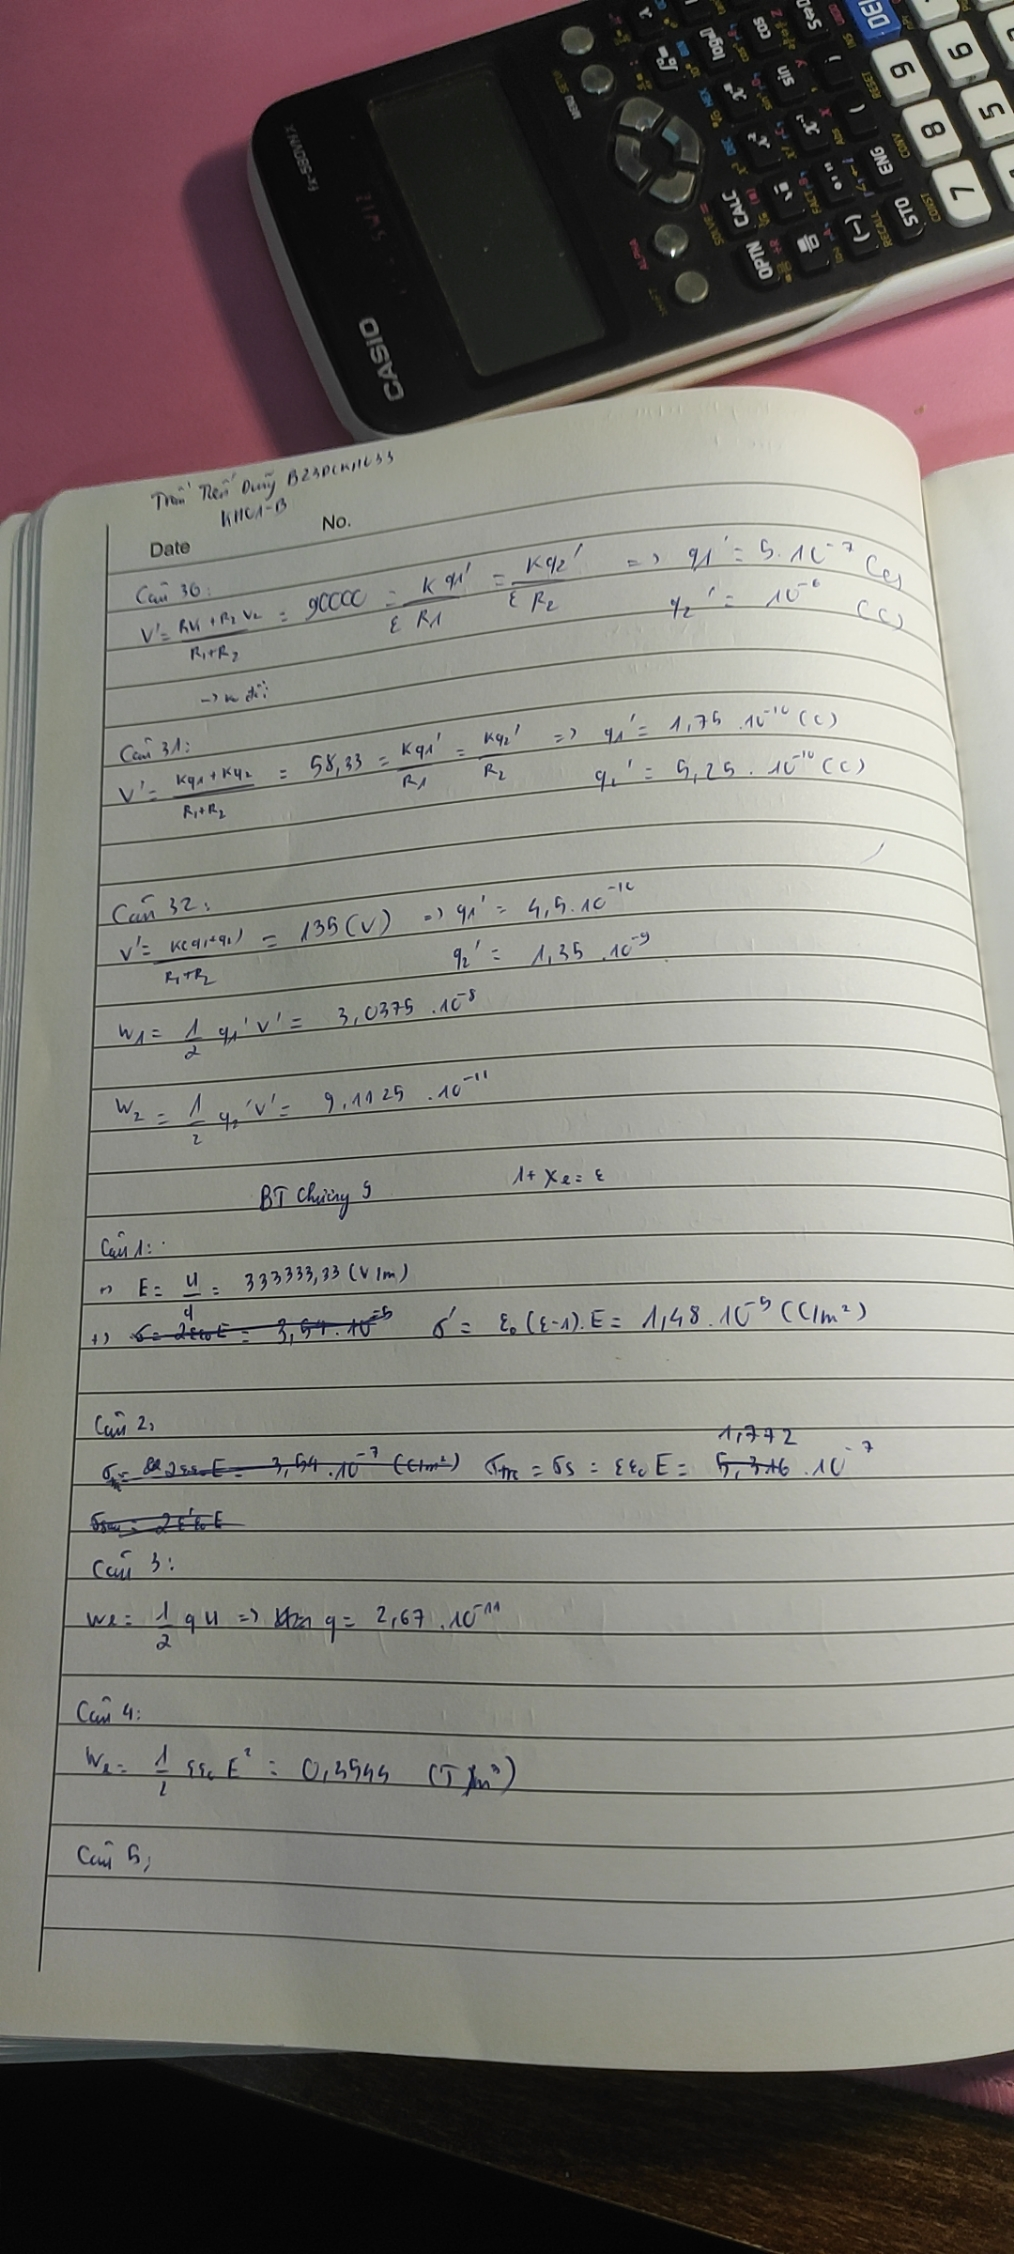 CASIO
fx-580VN X
MENU SETUP
OPTN CALC
SHIFT ALPHA
STO ENG ( ) S⇔D
7 8 9 DEL
5 6
(-) sin cos
Trần Tiến Dũng B23DCKH033
KH01-B
Date No.
Câu 30:
V' = R1V1 + R2 V2 / R1+R2 = 90000 = K q1' / ε R1 = K q2' / ε R2 => q1' = 5.10^-7 (C)
q2' = 10^-6 (C)
Câu 31:
V' = Kq1 + Kq2 / R1+R2 = 58,33 = Kq1' / R1 = Kq2' / R2 => q1' = 1,75 .10^-10 (C)
q2' = 5,25 . 10^-10 (C)
Câu 32:
V' = K(q1+q2) / R1+R2 = 135(V) => q1' = 4,5.10^-10
q2' = 1,35 .10^-9
W1 = 1/2 q1' V' = 3,0375 .10^-8
W2 = 1/2 q2' V' = 9,1125 .10^-11
BT Chương 5 1+ Xe = ε
Câu 1:
E = U/d = 333333,33 (V/m)
+) σ = 2εε0 E = 3,54.10^-5 σ' = ε0 (ε-1).E = 1,48.10^-5 (C/m²)
Câu 2:
2εε0 E = 3,54.10^-7 (C/m²) = εε0 E = 5,316 1,772 .10^-7
Câu 3:
We = 1/2 q U => q = 2,67 .10^-11
Câu 4:
We = 1/2 εε0 E² = 0,3544 (J/m³)
Câu 5: